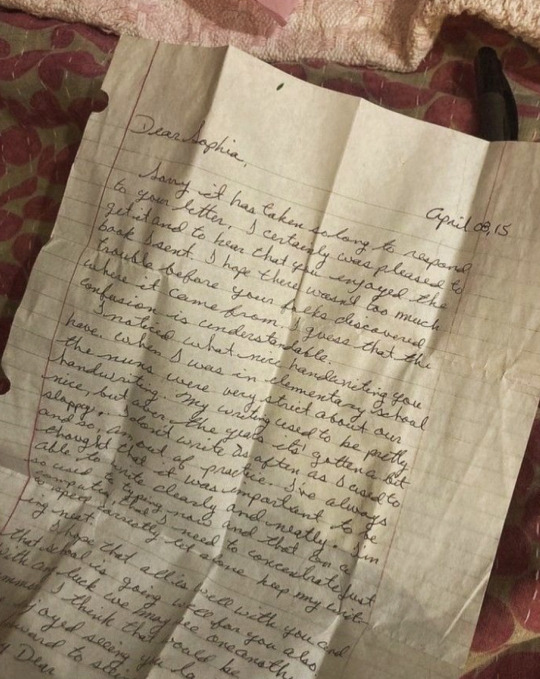 April 08, 15
Dear Sophia,
Sorry it has taken so long to respond
to your letter. I certainly was pleased to
get it and to hear that you enjoyed the
book I sent. I hope there wasn't too much
trouble before your folks discovered
where it came from. I guess that the
confusion is understandable.
I noticed what nice handwriting you
have. When I was in elementary school
the nuns were very strict about our
handwriting. My writing used to be pretty
nice, but over the years its' gotten a bit
sloppy. I don't write as often as I used to
and so, am out of practice. I've always
thought that it was important to be
able to write clearly and neatly. I'm
so used to typing now and that on a
computer, that I need to concentrate just
to spell correctly let alone keep my writ-
ing neat.
I hope that all is well with you and
that school is going well for you also.
With any luck we may see one another
I think they would be
enjoyed seeing you
forward to
Dear